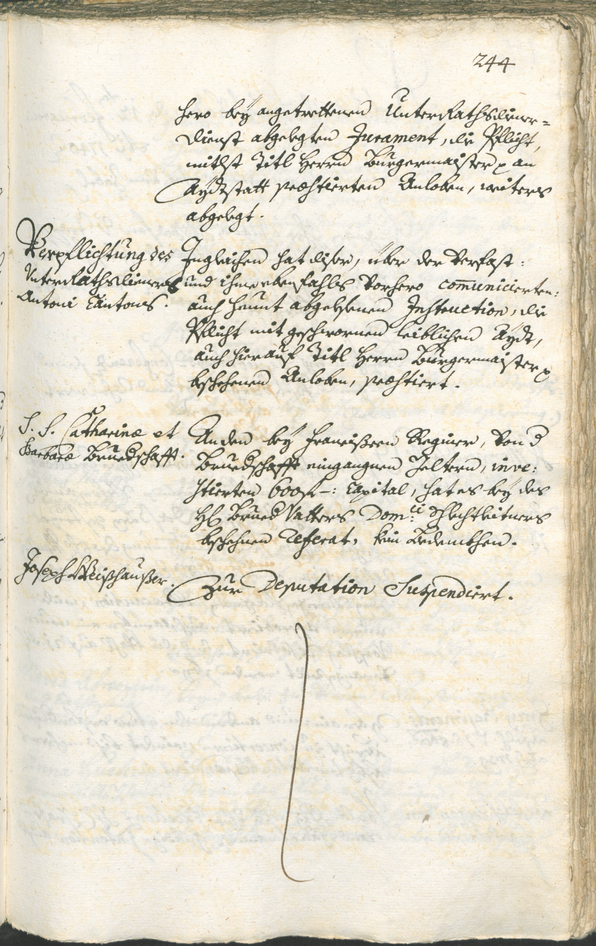 244
hero beÿ angetrettenen UnterRathsdiener-
dienst abgelegten Jurament, die Pflicht,
mitlst Titl Herrn Burgermaister an
Aydtstatt præstierten Anloben, weiters
abgelegt.
Verpflichtung des
UnterRathsdieners
Antoni Cantons.
Ingleichen hat diser, über der verfast:
und ihme ebenfahls vorhero comunicierten:
auch heunt abgelesenen Instruction, die
Pflicht mit geschwornen leiblichen Aydt,
auch hierauf Titl Herrn Burgermaister
beschehenen Anloben, præstiert.
S. S. Catharinæ et
Barbaræ Bruedschafft.
An den beÿ Francißcen von
Bruedschafft eingangnen Geltern, inve:
stierten 600 f: Capital, hat es beÿ des
H: Brued Vatters Dom:
beschehnen Referat, kein Bedenkhen.
Joseph Weißhaußer.
Zur Deputation Suspendiert.